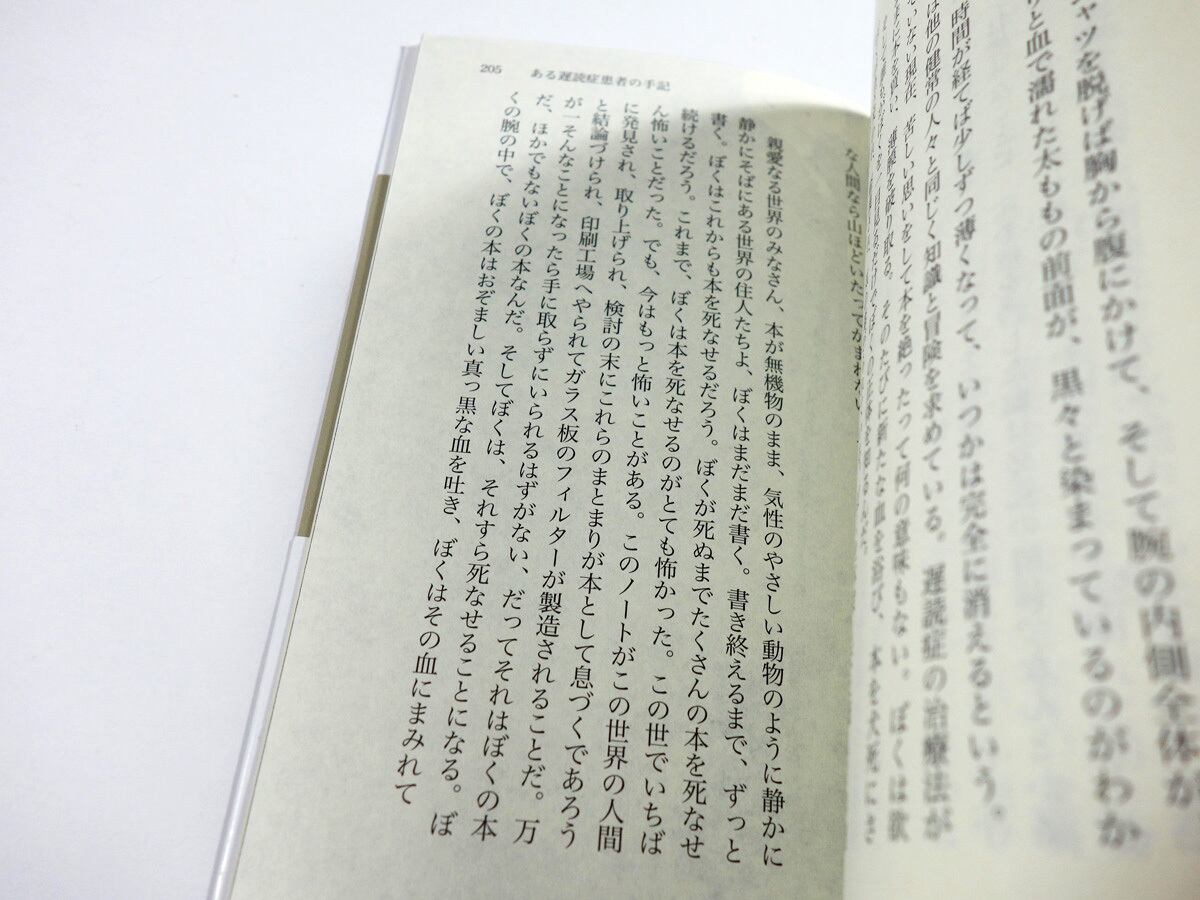 ャツを脱げば胸から腹にかけて、そして腕の内側全体が
と血で濡れた太ももの前面が、黒々と染まっているのがわか
時間が経てば少しずつ薄くなって、いつかは完全に消えるという。
は他の健常の人々と同じく知識と冒険を求めている。遅読症の治療法が
ていない現在、苦しい思いをして本を絶ったって何の意味もない。ぼくは欲
な人間なら山ほどいたってかまわない
205 ある遅読症患者の手記
親愛なる世界のみなさん、本が無機物のまま、気性のやさしい動物のように静かに
静かにそばにある世界の住人たちよ、ぼくはまだまだ書く。書き終えるまで、ずっと
書く。ぼくはこれからも本を死なせるだろう。ぼくが死ぬまでたくさんの本を死なせ
続けるだろう。これまで、ぼくは本を死なせるのがとても怖かった。この世でいちば
ん怖いことだった。でも、今はもっと怖いことがある。このノートがこの世界の人間
に発見され、取り上げられ、検討の末にこれらのまとまりが本として息づくであろう
と結論づけられ、印刷工場へやられてガラス板のフィルターが製造されることだ。万
が一そんなことになったら手に取らずにいられるはずがない、だってそれはぼくの本
だ、ほかでもないぼくの本なんだ。そしてぼくは、それすら死なせることになる。ぼ
くの腕の中で、ぼくの本はおぞましい真っ黒な血を吐き、ぼくはその血にまみれて